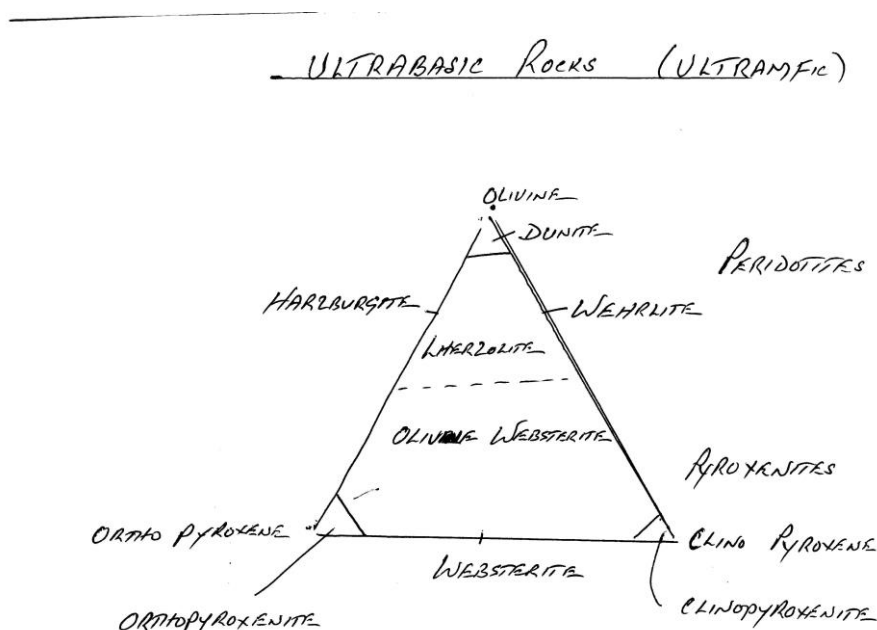 ULTRABASIC ROCKS (ULTRAMFIC)
OLIVINE
DUNITE
PERIDOTITES
HARZBURGITE
WEHRLITE
LHERZOLITE
OLIVINE WEBSTERITE
PYROXENITES
ORTHO PYROXENE
CLINO PYROXENE
WEBSTERITE
ORTHOPYROXENITE
CLINOPYROXENITE